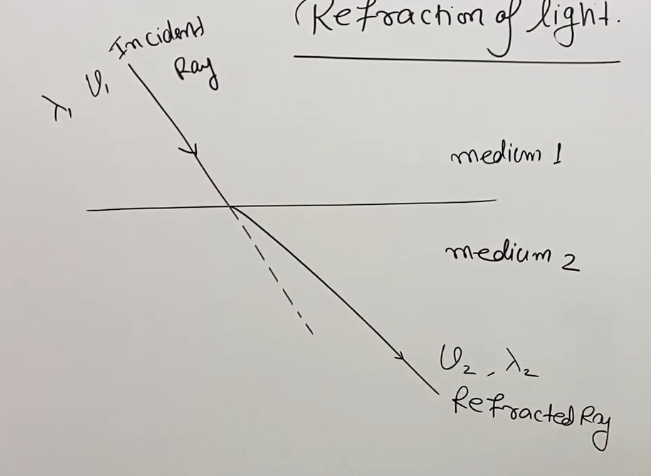 (Refraction of light.
Incident
Ray
λ₁ υ₁
medium 1
medium 2
υ₂, λ₂
Refracted Ray